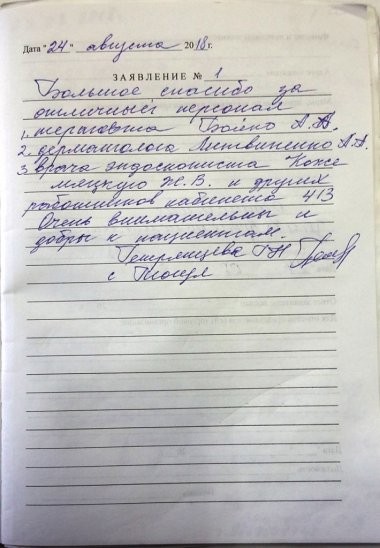 Дата "24" августа 2018 г.
ЗАЯВЛЕНИЕ № 1
Большое спасибо за
отличный персонал
1. терапевта Бойко А.А.
2. дерматолога Литвиненко А.А.
3. врача эндоскописта Коже
мяцкую Ж.В. и других
работников кабинета 413
Очень внимательны и
добры к пациентам.